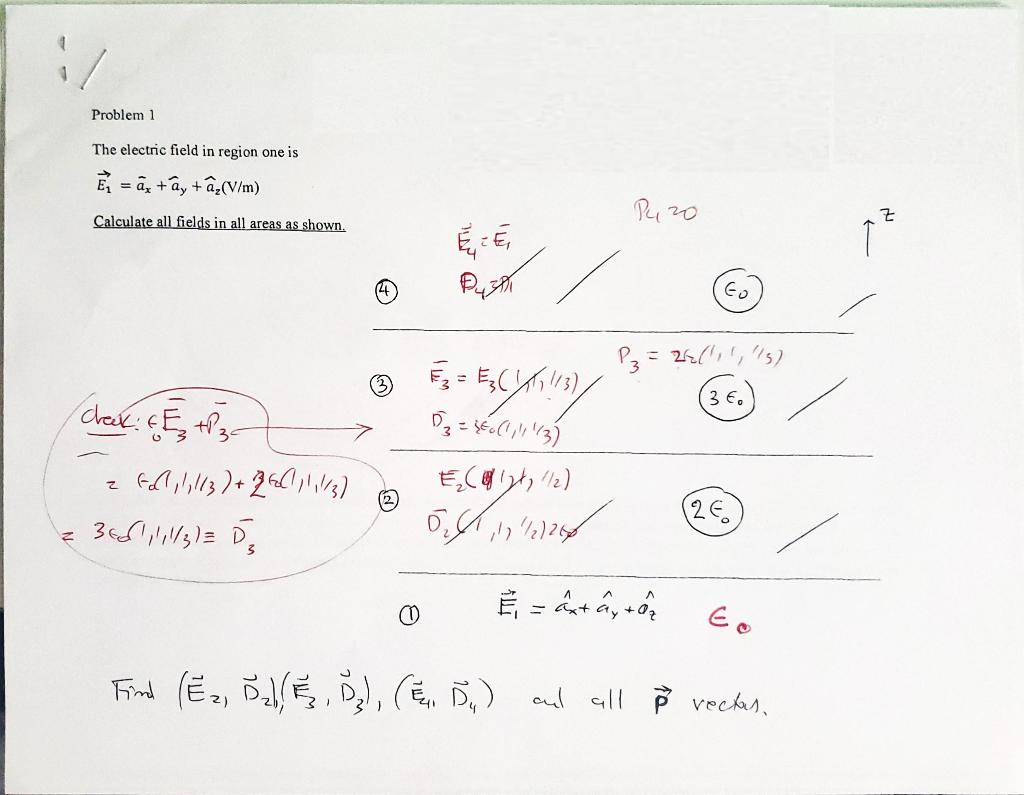 Problem 1
The electric field in region one is
E⃗₁ = âₓ + âᵧ + â_z(V/m)
Calculate all fields in all areas as shown.
P₄ = 0
z
E⃗₄ = E̅₁
D₄ = D₁
④ ϵ₀
P₃ = 2ε(1, 1, 1/3)
③ E̅₃ = E₃(1, 1, 1/3) 3ϵ₀
D̅₃ = 3ϵ₀(1, 1, 1/3)
check: ϵ₀E̅₃ + P̅₃
= ϵ₀(1, 1, 1/3) + 2ϵ₀(1, 1, 1/3)
= 3ϵ₀(1, 1, 1/3) ≡ D̅₃
② E₂(1, 1, 1/2) 2ϵ₀
D̅₂(1, 1, 1/2)2ϵ₀
① E⃗₁ = âₓ + âᵧ + â_z ϵ₀
Find (E⃗₂, D⃗₂), (E⃗₃, D⃗₃), (E⃗₄, D⃗₄) and all P⃗ vectors.